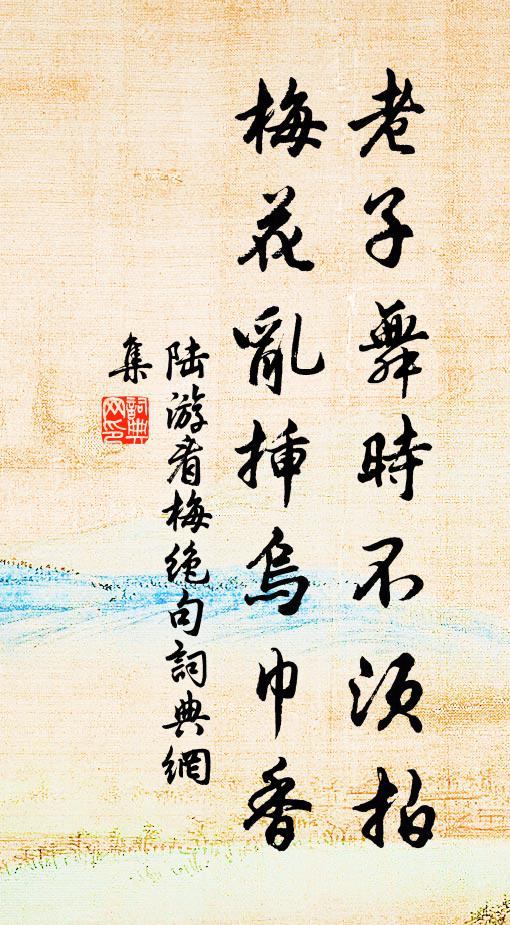 老子舞時不須拍
梅花亂插烏巾香
陆游看梅绝句詞典網
集
詞典
网印